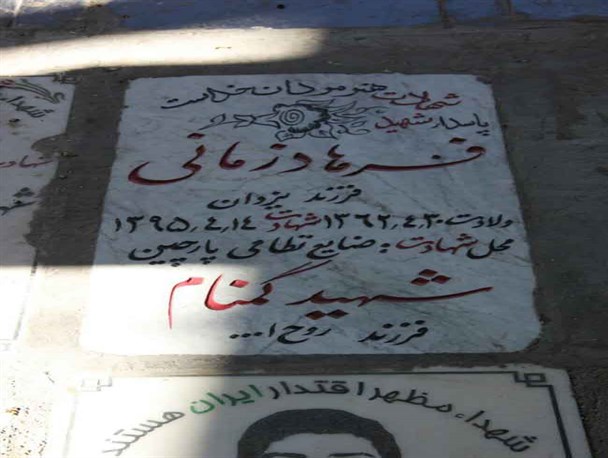 شهادت هنر مردان خداست
پاسدار شهید
فرهاد زمانی
فرزند یزدان
ولادت ۱۳۶۲٫۴٫۳۰ شهادت ۱۳۹۵٫۴٫۱۴
محل شهادت : صنایع نظامی پارچین
شهید گمنام
فرزند روح ا...
شهداء مظهر اقتدار ایران هستند
شهدا